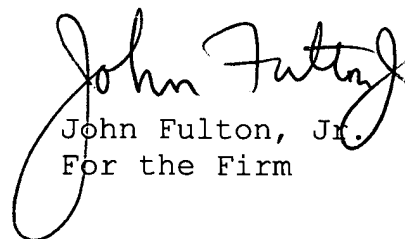 John Fulton Jr
John Fulton, Jr.
For the Firm